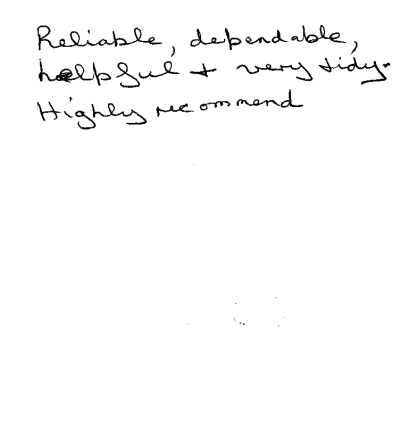 Reliable, dependable,
helpful + very tidy.
Highly recommend